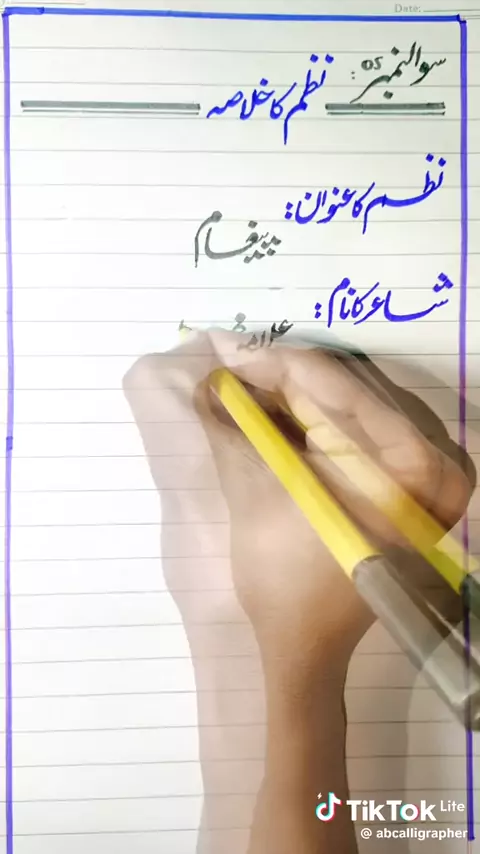 Date:
سوالنمبر 05:
نظم کا خلاصہ
نظم کا عنوان:
پیغام
شاعر کا نام:
علامہ
TikTok Lite
@ abcalligrapher